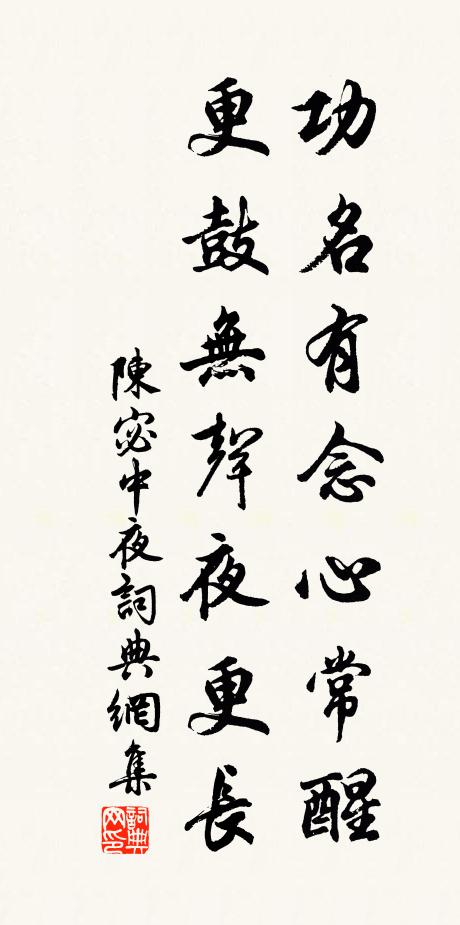 功名有念心常醒
更鼓無聲夜更長
陳宓中夜詞典網集
詞典网印